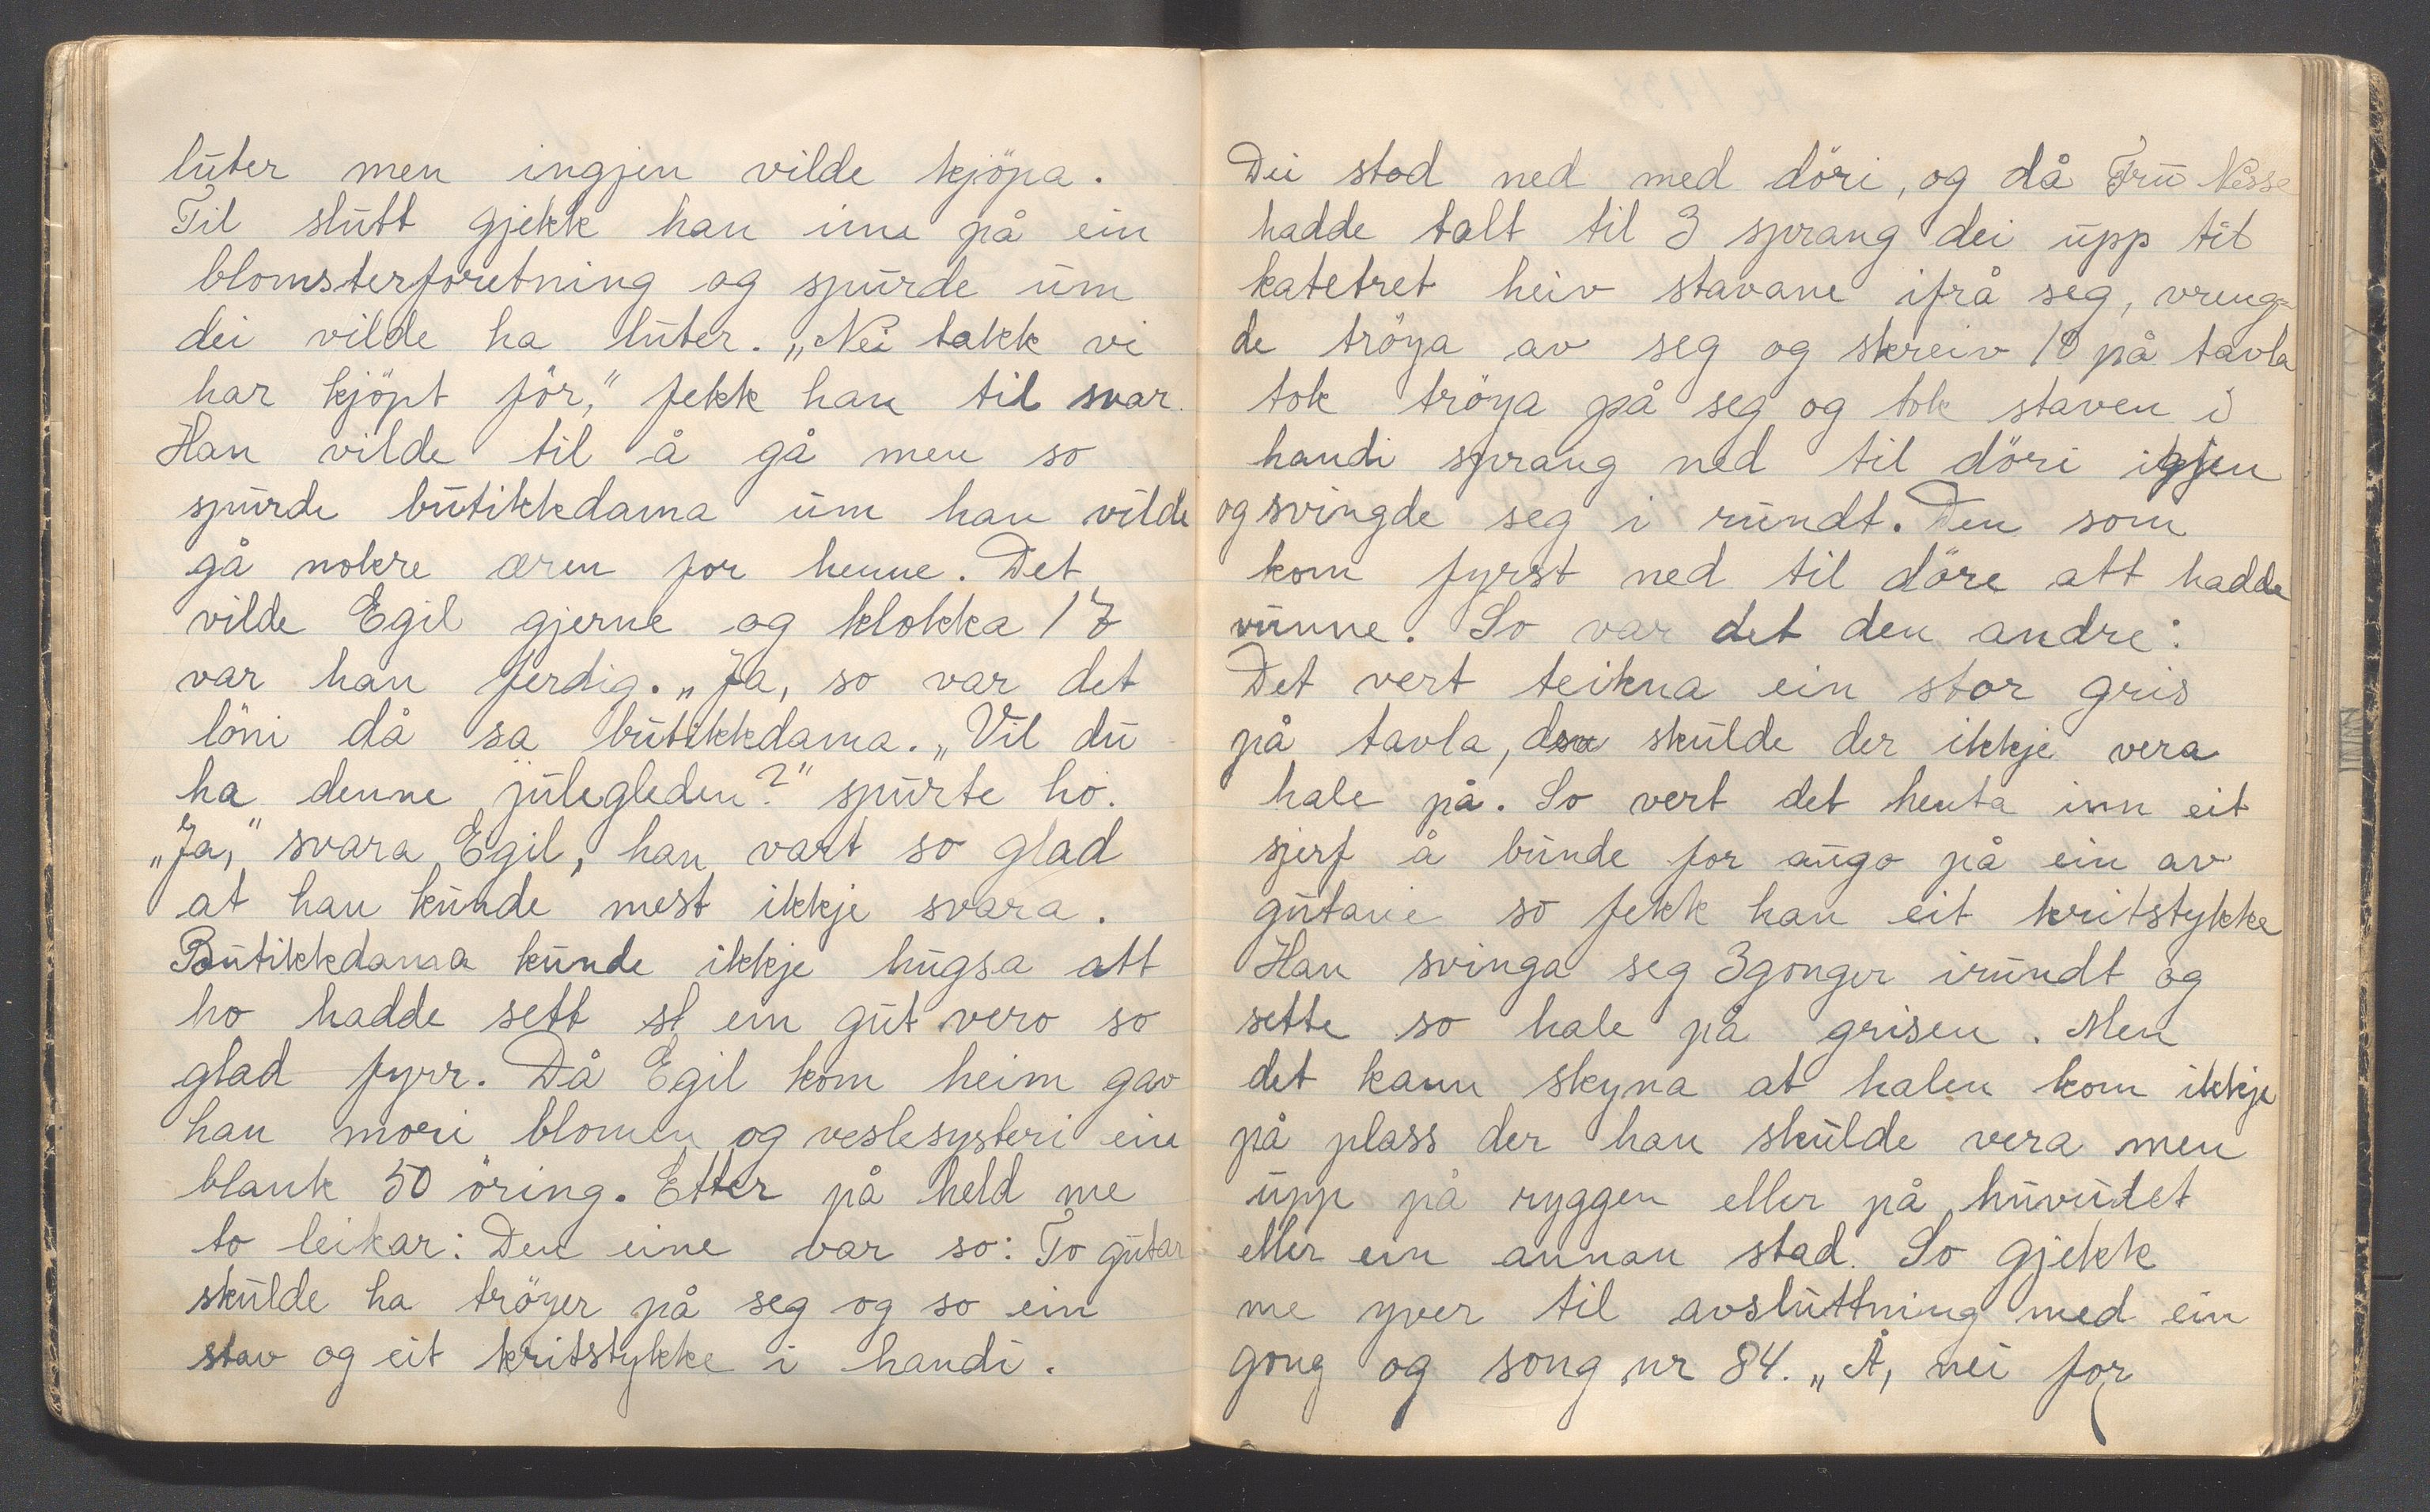 luter men ingjen vilde kjöpa.
Til slutt gjekk han inn på ein
blomsterforetning og spurde um
dei vilde ha luter. „Nei takk vi
har kjöpt för," fekk han til svar.
Han vilde til å gå men so
spurde butikkdama um han vilde
gå nokre æren for henne. Det
vilde Egil gjerne og klokka 17
var han ferdig. „Ja, so var det
löni då sa butikkdama. „Vil du
ha denne julegleden?" spurte ho.
„Ja," svara Egil, han vart so glad
at han kunde mest ikkje svara.
Butikkdama kunde ikkje hugsa att
ho hadde sett ein gut vero so
glad fyrr. Då Egil kom heim gav
han mori blomen og veslesysteri ein
blank 50 öring. Etter på held me
to leikar: Den eine var so: To gutar
skulde ha tröyer på seg og so ein
stav og eit kritstykke i handi.
Dei stod ned med döri, og då Fru Nesse
hadde talt til 3 sprang dei upp til
katetret heiv stavane ifrå seg, vreng=
de tröya av seg og skreiv 10 på tavla
tok tröya på seg og tok staven i
handi sprang ned til döri igjen
og svingde seg i rundt. Den som
kom fyrst ned til döre att hadde
vunne. So var det den andre:
Det vert teikna ein stor gris
på tavla, den skulde der ikkje vera
hale på. So vert det henta inn eit
sjerf å bunde for augo på ein av
gutane so fekk han eit kritstykke
Han svinga seg 3gonger irundt og
sette so hale på grisen. Men
det kann skyna at halen kom ikkje
på plass der han skulde vera men
upp på ryggen eller på huvudet
eller ein annan stad. So gjekk
me yver til avsluttning med ein
gong og song nr 84. „Å, nei for